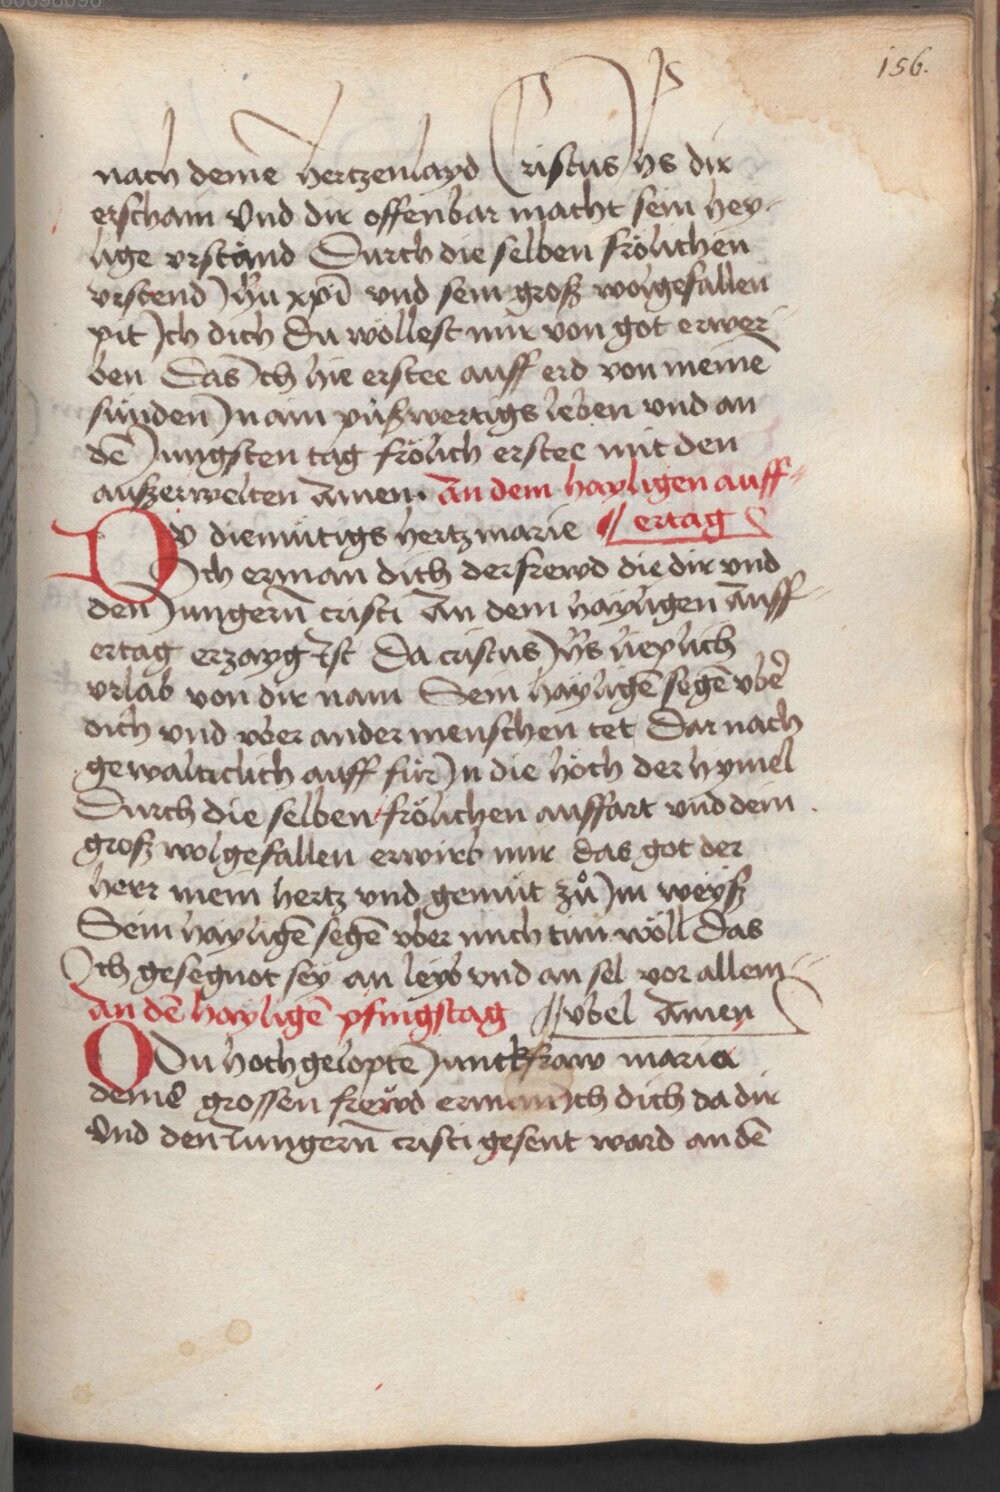 156.
nach deinē hertzenlayd Cristus Ihs dir
erschain Vnd dir offenbar macht sein hey-
lige vrständ Durch die selben frölichen
vrstend Ihu xpī vnd sein groß wolgefallen
pit Ich dich Du wöllest mir von got erwer
ben Das Ich hie erstee auff erd von meinē
sünden In ain půßwertigs leben vnd an
dē Iungsten tag frölich erstee mit den
außerwelten Amen. An dem hayligen auff-
ertag
DV diemütigs hertz marie
Ich erman dich der frewd die dir vnd
den Iungern̄ cristi An dem hayligen Auff-
ertag erzaygt Ist Da cristus Ihs lieplich
vrlab von dir nam Sein hayligē segē vber
dich vnd vber ander menschen tet Dar nach
gewalticlich auff fůr In die höch der hymel
Durch die selben frölichen auffart vnd dein
groß wolgefallen erwirb mir das got der
herr mein hertz vnd gemüt zů Im weyß
Sein hayligē segē vber mich tun wöll Das
Ich gesegnot sey an leyb vnd an sel vor allem
vbel Amen
An dē hayligē pfingstag
O Du hochgelopte Iunckfraw maria
deinē grossen frewd erman Ich dich da dir
Vnd den Iungern̄ cristi gesent ward an dē